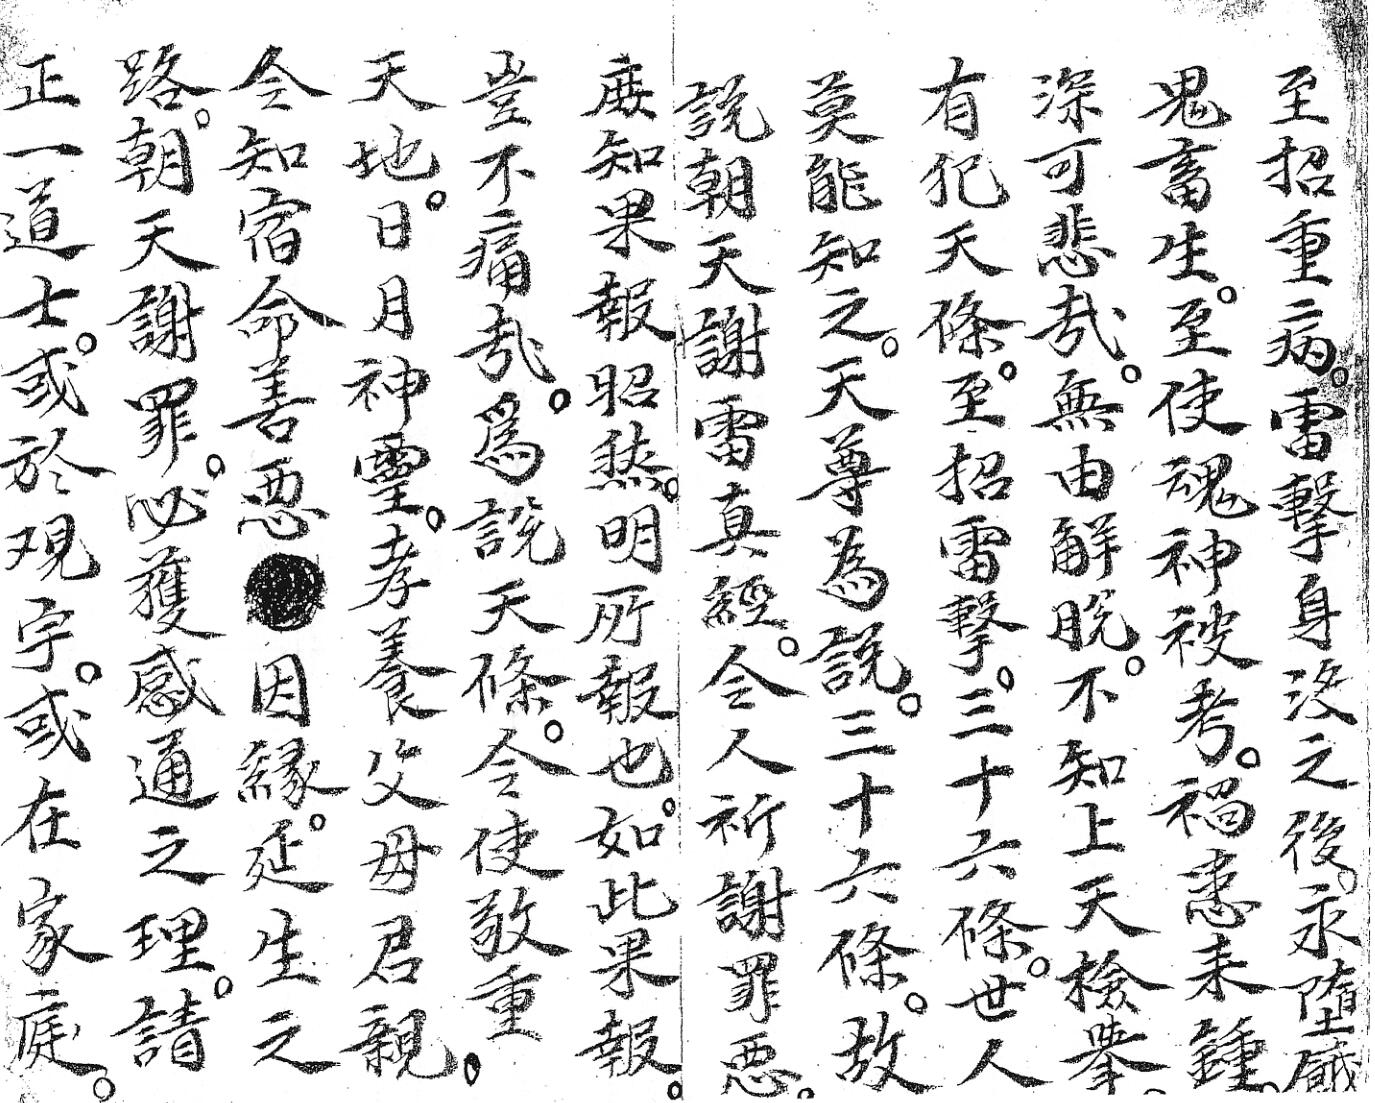 至招重病。雷擊身没之後。永墮
鬼畜生。至使魂神被考。禍患耒鍾。
深可悲哉。無由解脱。不知上天檢舉。
有犯天條。至招雷擊。三十六條。世人
莫能知之。天尊為説。三十六條。故
説朝天謝雷真經。令人祈謝罪惡。
庻知果報昭然。明所報也。如此果報。
豈不痛哉。爲説天條。令使敬重
天地。日月神靈。孝養父母君親。
令知宿命善惡因縁。延生之
路。朝天謝罪。必獲感通之理。請
正一道士。或於观宇。或在家庭。